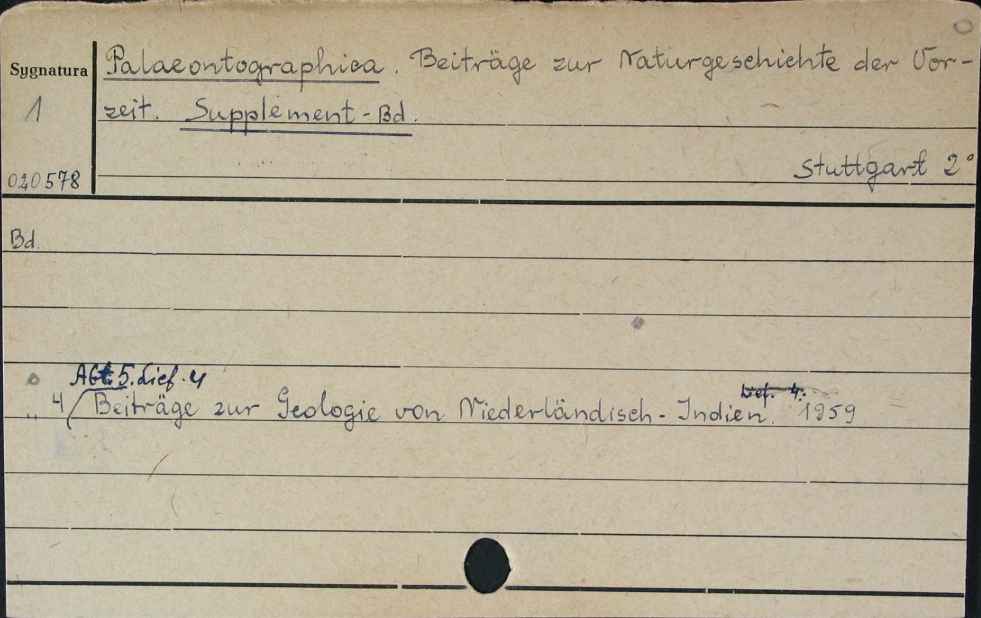 Sygnatura
1
020578
Palaeontographica. Beiträge zur Naturgeschichte der Vor-
zeit. Supplement-Bd.
Stuttgart 2°
Bd.
Abt. 5. Lief. 4
Lief. 4.
" 4 Beiträge zur Geologie von Niederländisch-Indien. 1959